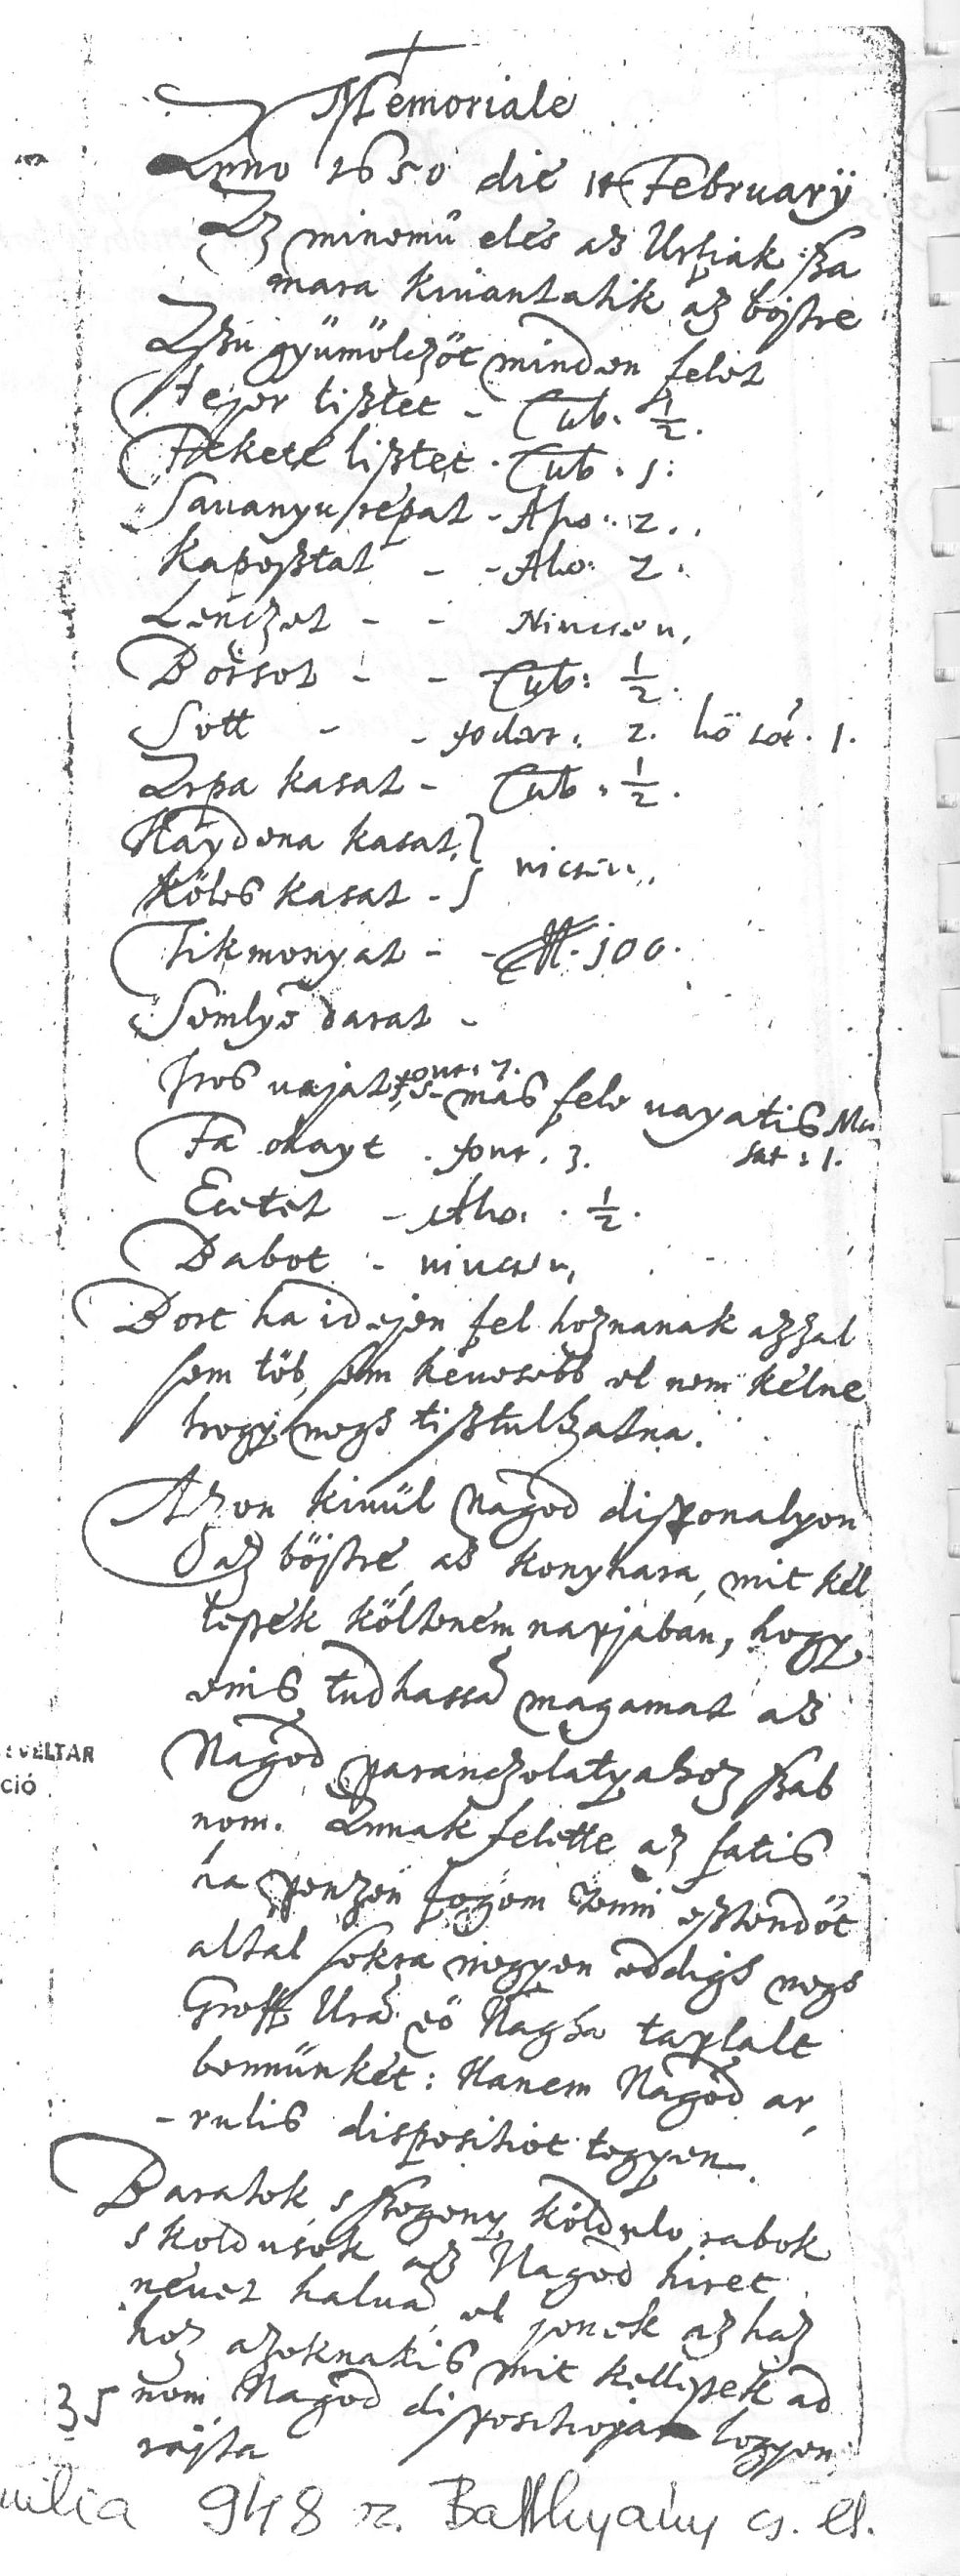 Memoriale
Anno 1650 die 14 February
Az minemü eles az Urfiak sza
mara kivantatik az böjtre
Aszu gyümölczöt minden felet
Fejer lisztet - Cub. 1/2.
Fekete lisztet. Cub. 1:
Savanyu repat - Ako: 2.
Kaposztat - - Ako: 2.
Lenczet - - Nincsen,
Borsot - - Cub: 1/2.
Sott - - 2. kö sot. 1.
Arpa kasat - Cub. 1/2.
Haydena kasat }
Köles kasat - } nicsen,
Tikmonyat - - 100.
Semlye darat -
Iros vajat font. mas fele vayatis Ma
sat: 1.
Fa olayt. font. 3.
Ecetet - Ako. 1/2.
Babot - nincsen,
Bort ha idejen fel hoznanak azzal
sem töb, sem kevesebb el nem kelne
hogy megh tisztulhatna.
Azon kivül Nagod disponalyon
az böjtre az konyhara, mit kel
lessek költenem napjaban, hogy
enis tudhassa magamat az
Nagod paranczolatyahoz szab
nom. Annak felette az satis
ra penzen fogom venni esztendöt
altal sokra megyen eddigh megh
Groff Ura eö Nagha taplalt
bennünket: Hanem Nagod ar,
-rulis dispositiot tegyen.
Baratok, s szegeny köldulo rabok
s koldusok az Nagod hiret
nevet halva, el jönek az haz
hoz azoknakis mit kellessek ad
nom Nagod dispositiojat tegyen
rajta
35
VÉLTÁR
ció
948 sz. Batthyány cs. lt.